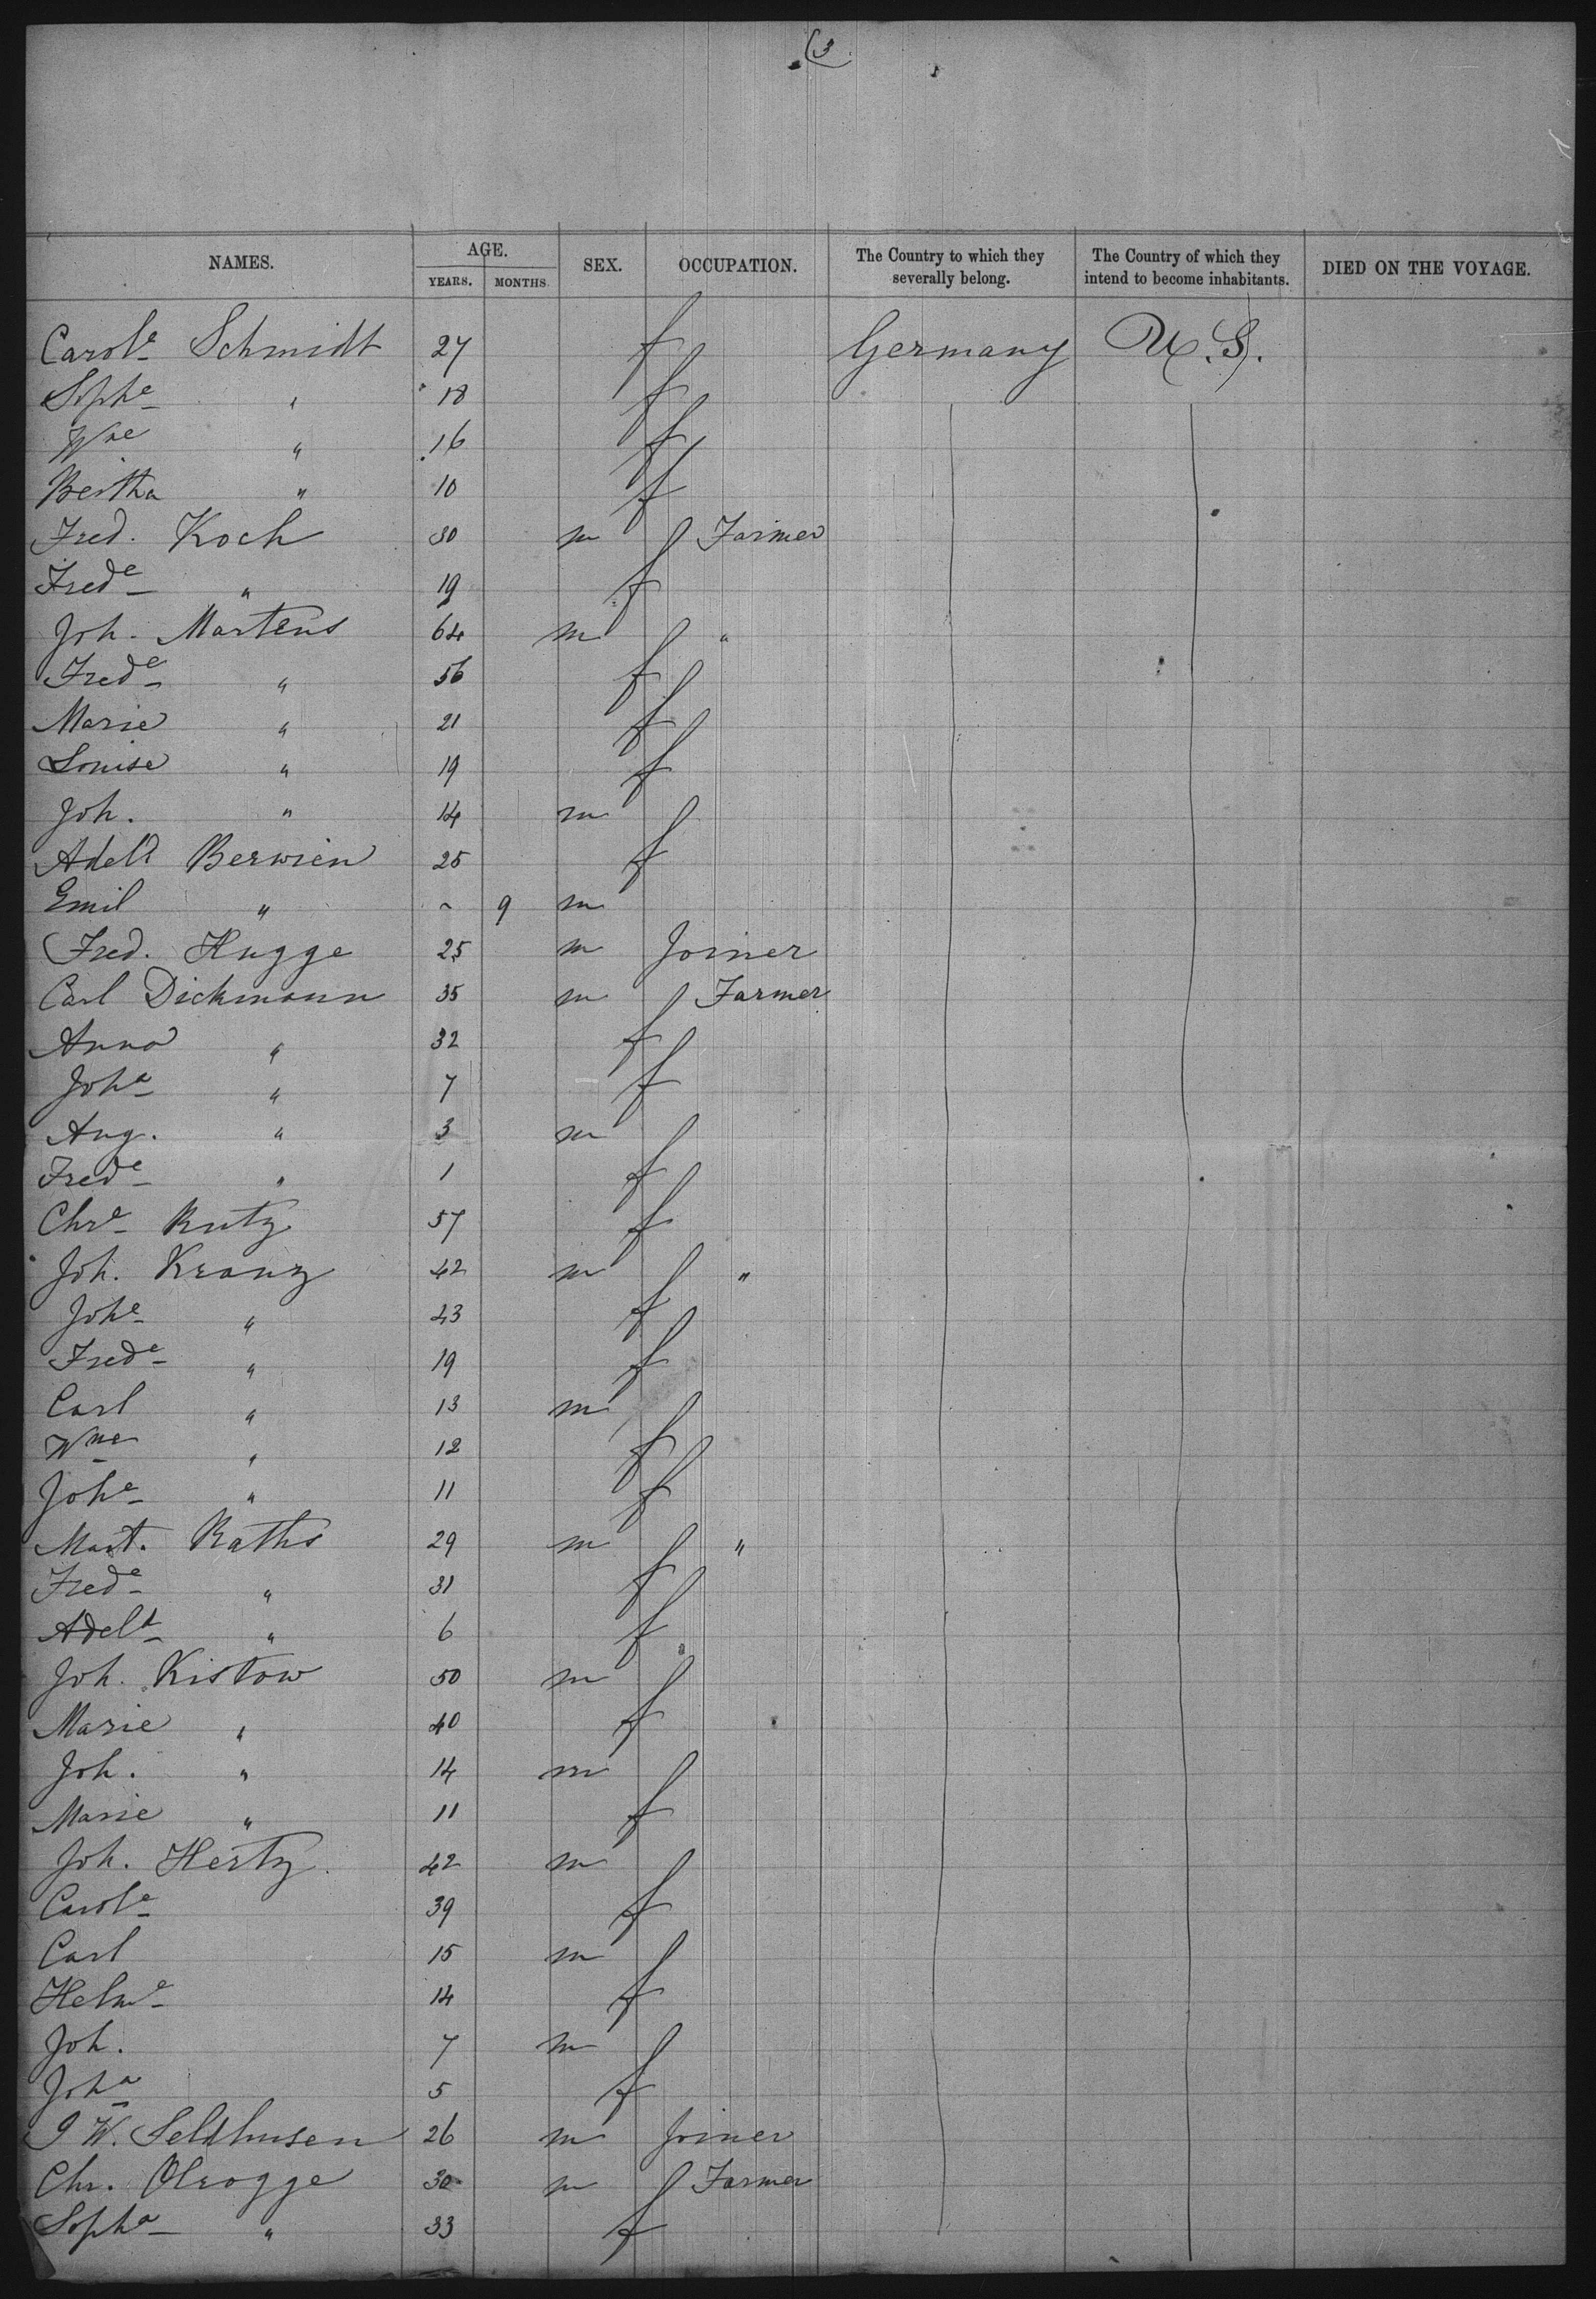 (3
NAMES. AGE. YEARS. MONTHS. SEX. OCCUPATION. The Country to which they severally belong. The Country of which they intend to become inhabitants. DIED ON THE VOYAGE.
Carole Schmidt 27 f Germany U.S.
Sophe " 18 f
Wne " 16 f
Bertha " 10 f
Fred. Koch 30 m Farmer
Frede " 19 f
Joh. Martens 64 m "
Frede " 56 f
Marie " 21 f
Louise " 19 f
Joh. " 14 m
Adeld Berwien 25 f
Emil " - 9 m
Fred. Hugge 25 m Joiner
Carl Dickmann 35 m Farmer
Anna " 32 f
Joha " 7 f
Aug. " 3 m
Frede " 1 f
Chre Rutz 57 f
Joh. Kranz 42 m "
Johe " 43 f
Frede " 19 f
Carl " 13 m
Wne " 12 f
Johe " 11 f
Mart. Raths 29 m "
Frede " 31 f
Adeld " 6 f
Joh. Kistow 50 m
Marie " 40 f
Joh. " 14 m
Marie " 11 f
Joh. Hertz 42 m
Carole 39 f
Carl 15 m
Helme 14 f
Joh. 7 m
Joha 5 f
W. Seldhusen 26 m Joiner
Chr. Olrogge 30 m Farmer
Sopha " 33 f